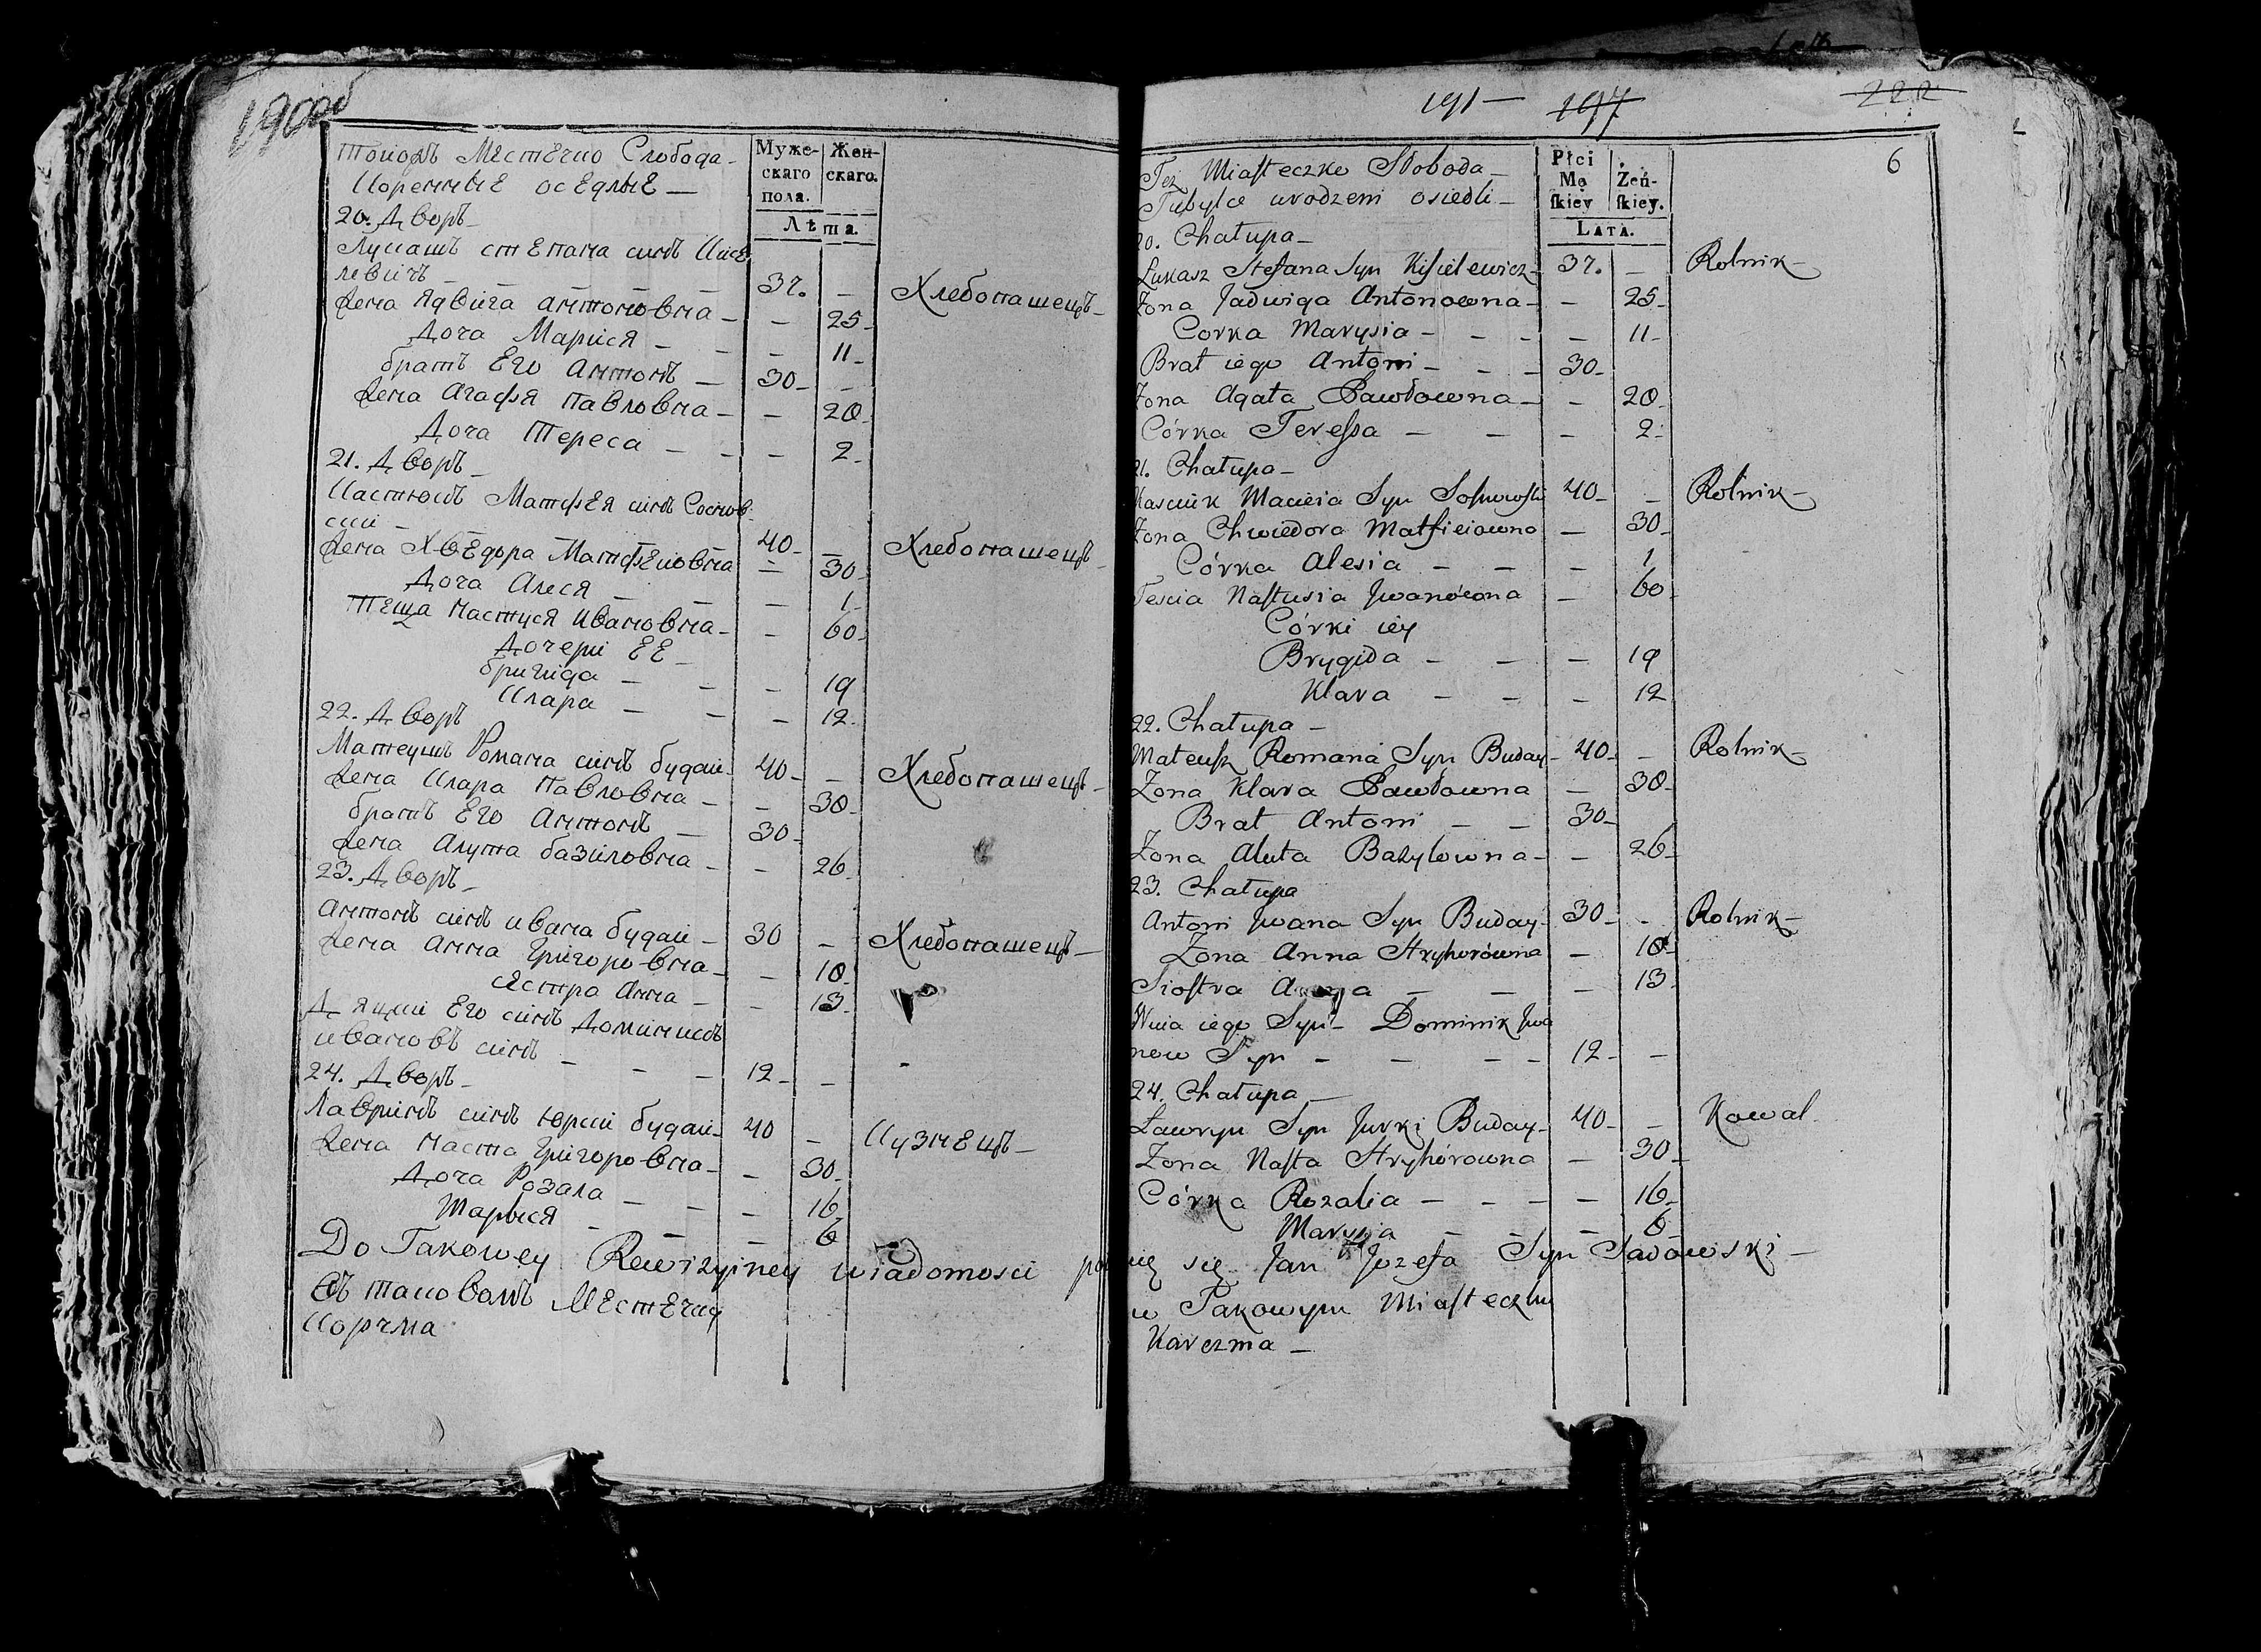 190об
Тоиожъ Местечко Слобода -
Коренные оседлые —
Муже-
скаго
пола.
Жен-
скаго.
Лѣта.
20. Дворъ -
Лукашъ степана синъ Кисе
левичъ - - - - - 37. - Хлебопашецъ -
Жена Ядвига антоновна - - 25 -
Доча Марися - - - 11 -
братъ Его антонъ - 30 - -
Жена агафя павловна - - 20 -
Доча Тереса - - - 2 -
21. Дворъ -
Кастюкъ Матфея синъ Соснов-
ски - 40 - - Хлебопашецъ -
Жена Хведора Матфеиовна - 30 -
Доча Алеся - - - 1 -
Теща настуся ивановна - - 60 -
Дочери ЕЕ -
бригида - - - 19
Клара - - - 12 -
22. Дворъ
Матеушъ Романа синъ будаи - 40 - - Хлебопашецъ -
Жена Клара павловна - - 30 -
братъ Его антонъ - 30 -
Жена алута базиловна - - 26 -
23. Дворъ -
антонъ синъ ивана будаи - 30 - Хлебопашецъ -
Жена анна григоровна - - 18 -
Сестра анна - - 13 -
Дядки Его синъ Доминикъ
ивановъ синъ - - - 12 - -
24. Дворъ -
Лавринъ синъ юрки будаи - 40 - Кузнецъ -
Жена наста григоровна - - 30 -
Доча Розала - - - 16 -
Марыся - - - 6
До Takowey Rewizyiney wiadomosci się Jan Jozefa Syn Sadowski -
Въ таковомъ Местечку
Корчма
191 - 197 222
6
Też Miasteczko Słoboda -
Tubylce urodzeni osiedli -
Płci
Mę
skiey
Żeń-
skiey.
Lata.
20. Chałupa -
Łukasz Stefana Syn Kisielewicz - 37. - Rolnik -
Zona Jadwiga Antonowna - - 25 -
Corka Marysia - - - - 11 -
Brat iego Antoni - - - 30 -
Zona Agata Pawłowna - - 20 -
Córka Teressa - - - 2 -
21. Chałupa -
Kasciuk Macieia Syn Sosnowski 40 - - Rolnik -
Zona Chwiedora Matfieiowna - 30 -
Córka Alesia - - - 1
Tescia Nastusia Jwanówna - 60
Córki iéy
Brygida - - - 19
Klara - - - 12
22. Chałupa -
Mateusz Romana Syn Buday - 40 - - Rolnik -
Zona Klara Pawłowna - 30 -
Brat Antoni - - 30 -
Zona Aluta Bazylowna - - 26 -
23. Chałupa
Antoni Jwana Syn Buday - 30 - - Rolnik -
Zona Anna Hryhorówna - 18 -
Siostra - - - 13
iego Syn - Dominik Jwa
now Syn - - - - 12 - -
24. Chałupa -
Ławryn Syn Jurki Buday - 40 - - Kowal -
Zona Nasta Hryhórowna - 30 -
Córka Rozalia - - - - 16 -
Marysia - - - 6 -
w Takowym Miasteczku
Karczma -